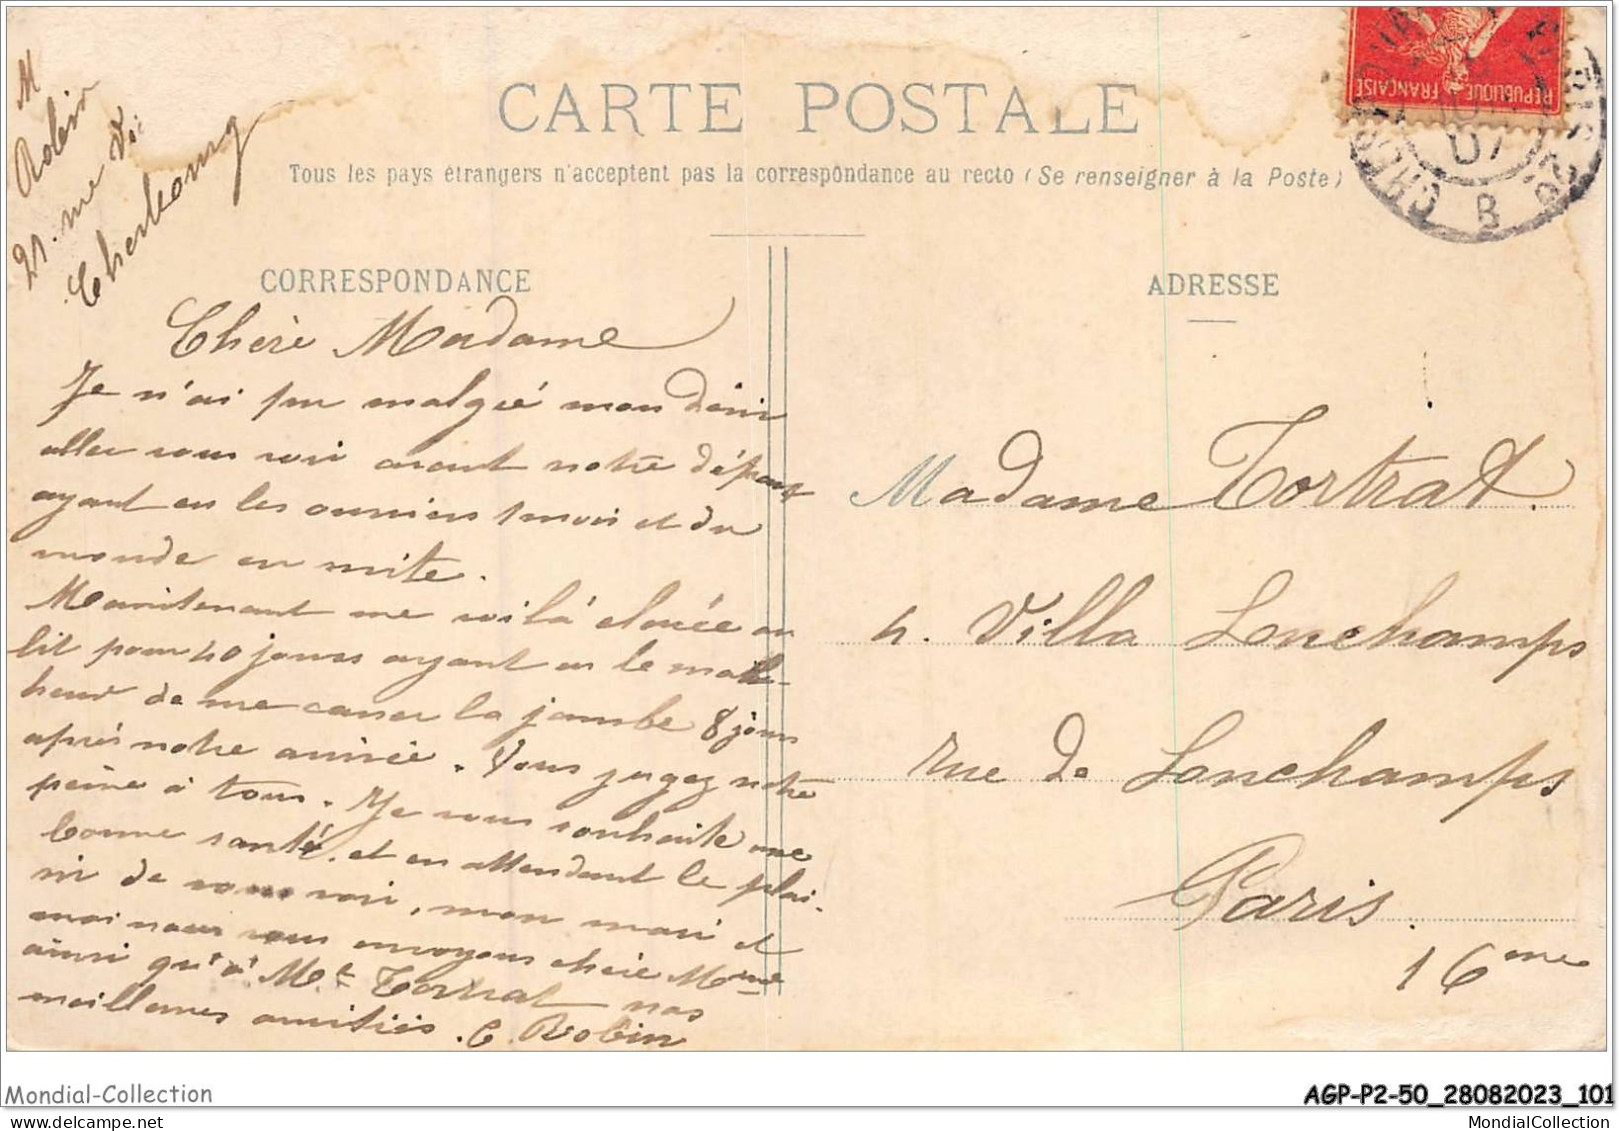 M
Robin
21. rue
Cherbourg
CARTE POSTALE
Tous les pays étrangers n'acceptent pas la correspondance au recto (Se renseigner à la Poste)
REPUBLIQUE FRANÇAISE
07
B
CORRESPONDANCE
Chère Madame
Je n'ai pu malgré mon désir
aller vous voir avant notre départ
ayant eu les ouvriers 1 mois et du
monde en suite.
Maintenant me voilà clouée au
lit pour 40 jours ayant eu le mal-
heur de me casser la jambe 8 jours
après notre arrivée. Vous jugez notre
peine à tous. Je vous souhaite une
bonne santé, et en attendant le plai-
sir de vous voir, mon mari et
moi nous vous envoyons chère Mme
ainsi qu'à Mr Tortrat nos
meilleures amitiés. C. Robin
ADRESSE
Madame Tortrat.
4. Villa Lonchamps
rue de Lonchamps
Paris.
16eme
Mondial-Collection
AGP-P2-50_28082023_101
MondialCollection